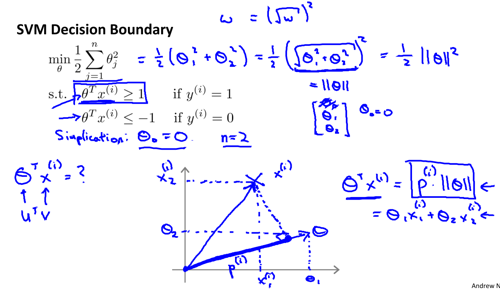 ω = (√ω)²
SVM Decision Boundary
min θ 1/2 Σ j=1 n θj² = 1/2 (θ₁² + θ₂²) = 1/2 (√θ₁² + θ₂²)² = 1/2 ||θ||²
= ||θ||
s.t. θᵀx⁽ⁱ⁾ ≥ 1 if y⁽ⁱ⁾ = 1
→ θᵀx⁽ⁱ⁾ ≤ −1 if y⁽ⁱ⁾ = 0
[θ₁ θ₂] θ₀=0
Simplication: θ₀ = 0 n=2
θᵀx⁽ⁱ⁾ = ?
↑ ↑
uᵀv
x₂⁽ⁱ⁾
x⁽ⁱ⁾
θ₂
θ
p⁽ⁱ⁾
x₁⁽ⁱ⁾
θ₁
θᵀx⁽ⁱ⁾ = p⁽ⁱ⁾ · ||θ|| ←
= θ₁x₁⁽ⁱ⁾ + θ₂x₂⁽ⁱ⁾ ←
Andrew N